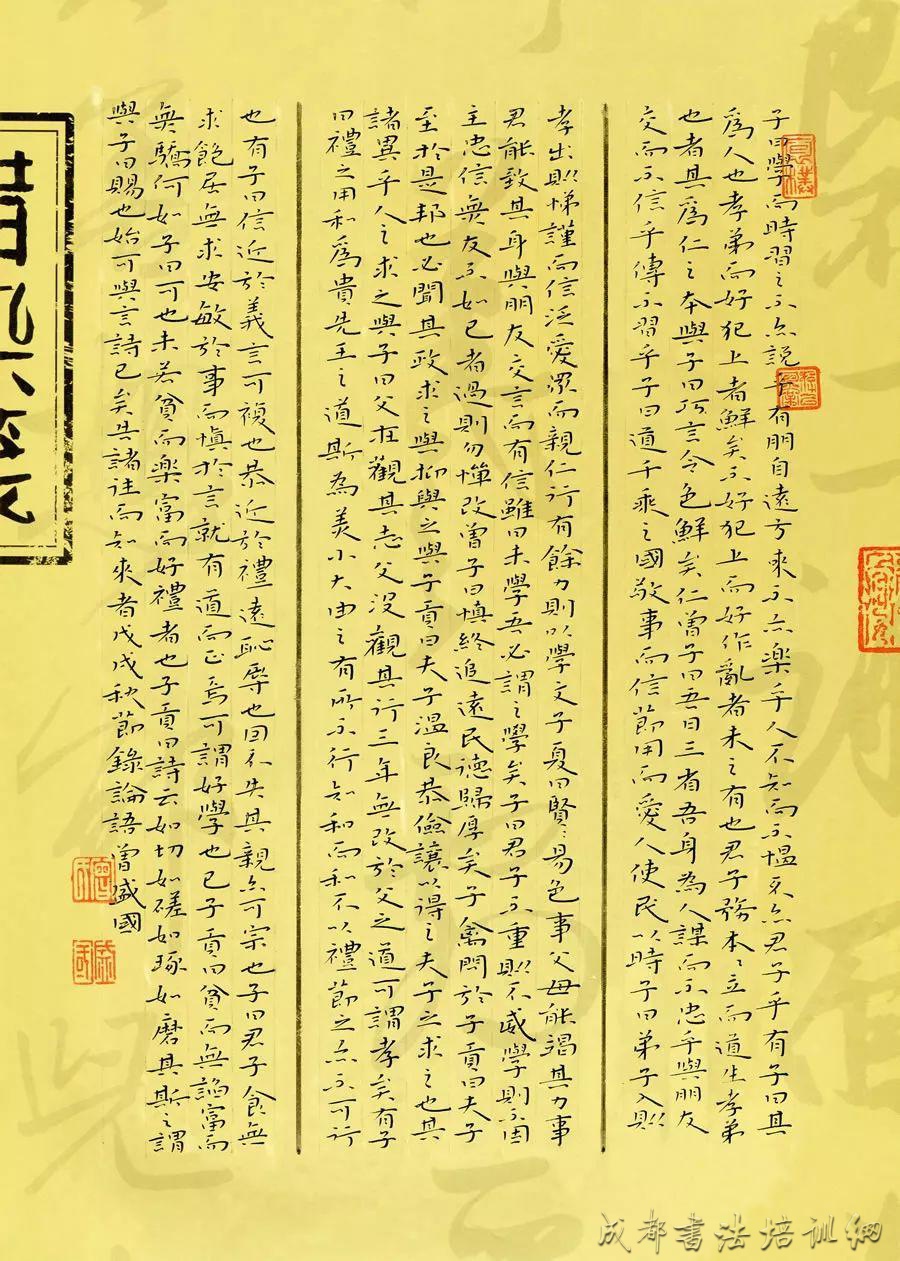 子曰學而時習之不亦説乎有朋自遠方來不亦楽乎人不知而不慍不亦君子乎有子曰其
爲人也孝弟而好犯上者鮮矣不好犯上而好作亂者未之有也君子務本〻立而道生孝弟
也者其爲仁之本與子曰巧言令色鮮矣仁曾子曰吾日三省吾身為人謀而不忠乎與朋友
交而不信乎傳不習乎子曰道千乘之國敬事而信節用而愛人使民以時子曰弟子入則
孝出則悌謹而信泛愛眾而親仁行有餘力則以學文子夏曰賢〻易色事父母能竭其力事
君能致其身與朋友交言而有信雖曰未學吾必謂之學矣子曰君子不重則不威學則不固
主忠信無友不如已者過則勿憚改曾子曰慎終追遠民德歸厚矣子禽問於子貢曰夫子
至於是邦也必聞其政求之與抑與之與子貢曰夫子温良恭儉讓以得之夫子之求之也其
諸異乎人之求之與子曰父在觀其志父没觀其行三年無改於父之道可謂孝矣有子
曰禮之用和爲貴先王之道斯為美小大由之有所不行知和而和不以禮節之亦不可行
也有子曰信近於義言可複也恭近於禮遠恥辱也因不失其親亦可宗也子曰君子食無
求飽居無求安敏於事而慎於言就有道而正焉可謂好學也已子貢曰貧而無諂富而
無驕何如子曰可也未若貧而楽富而好禮者也子貢曰詩云如切如磋如琢如磨其斯之謂
與子曰賜也始可與言詩已矣告諸往而知來者戊戌秋節錄論語曾盛國
成都書法培训網